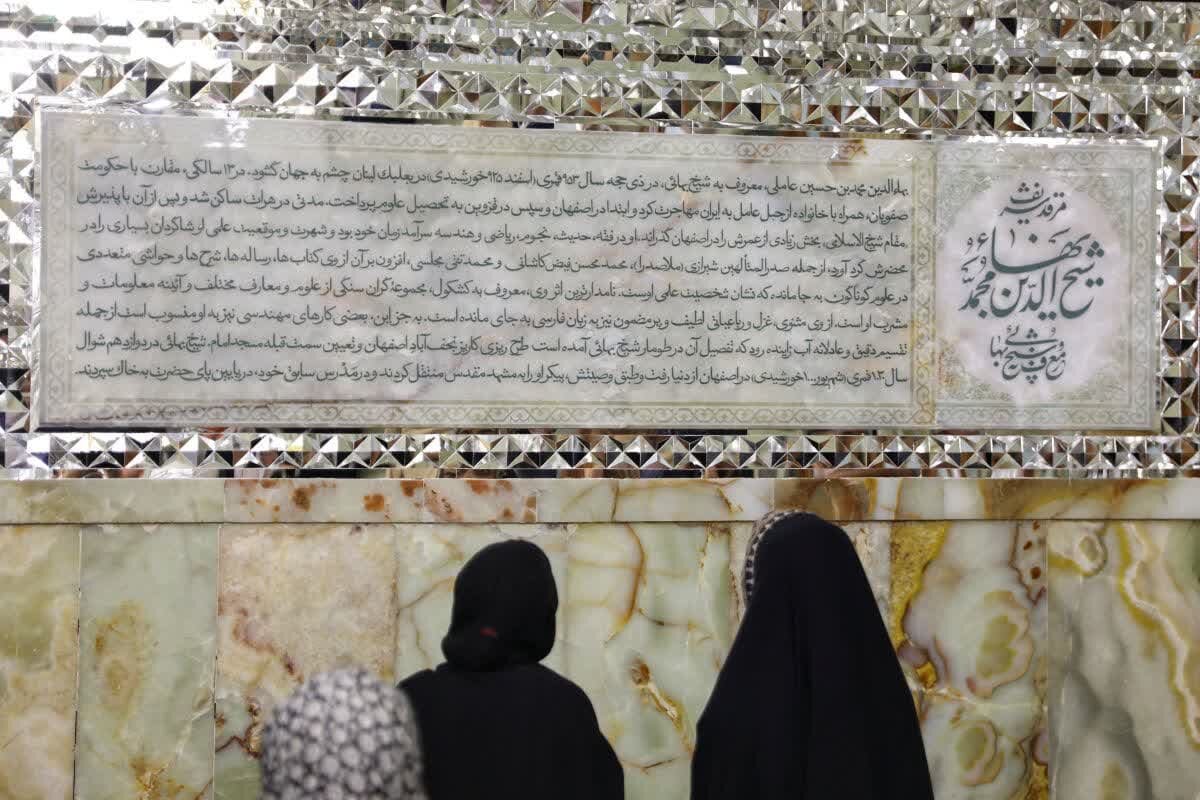 مرقد شریف
شیخ بهاءالدین محمد
معروف به شیخ بهایی
بهاءالدین محمدبن حسین عاملی، معروف به شیخ بهائی، در ذی حجه سال ۹۵۳ قمری (اسفند ۹۲۵ خورشیدی) در بعلبک لبنان چشم به جهان گشود. در ۱۳ سالگی، مقارن با حکومت
صفویان، همراه با خانواده از جبل عامل به ایران مهاجرت کرد و ابتدا در اصفهان و سپس در قزوین به تحصیل علوم پرداخت. مدتی در هرات ساکن شد و پس از آن با پذیرش
مقام شیخ الاسلامی، بخش زیادی از عمرش را در اصفهان گذراند. او در فقه، حدیث، نجوم، ریاضی و هندسه سرآمد زمان خود بود و شهرت و موقعیت علمی او شاگردان بسیاری را در
محضرش گرد آورد، از جمله صدرالمتألهین شیرازی (ملاصدرا)، محمد محسن فیض کاشانی و محمد تقی مجلسی. افزون بر آن از وی کتاب‌ها، رساله‌ها، شرح‌ها و حواشی متعددی
در علوم گوناگون به جا مانده که نشان شخصیت علمی اوست. نامدارترین اثر وی، معروف به کشکول، مجموعه گران سنگی از علوم و معارف مختلف و آئینه معلومات و
مشرب او است. از وی مثنوی، غزل و رباعیاتی لطیف و پرمضمون نیز به زبان فارسی به جای مانده است. به جز این، بعضی کارهای مهندسی نیز به او منسوب است از جمله
تقسیم دقیق و عادلانه آب زاینده رود که تفصیل آن در طومار شیخ بهائی آمده است طرح ریزی کاریز نجف آباد اصفهان و تعیین سمت قبله مسجد امام. شیخ بهائی در دوازدهم شوال
سال قمری (شهریور خورشیدی) در اصفهان از دنیا رفت و طبق وصیتش، پیکر او را به مشهد مقدس منتقل کردند و در مَدْرَس سابق خود، در پایین پای حضرت به خاک سپردند.